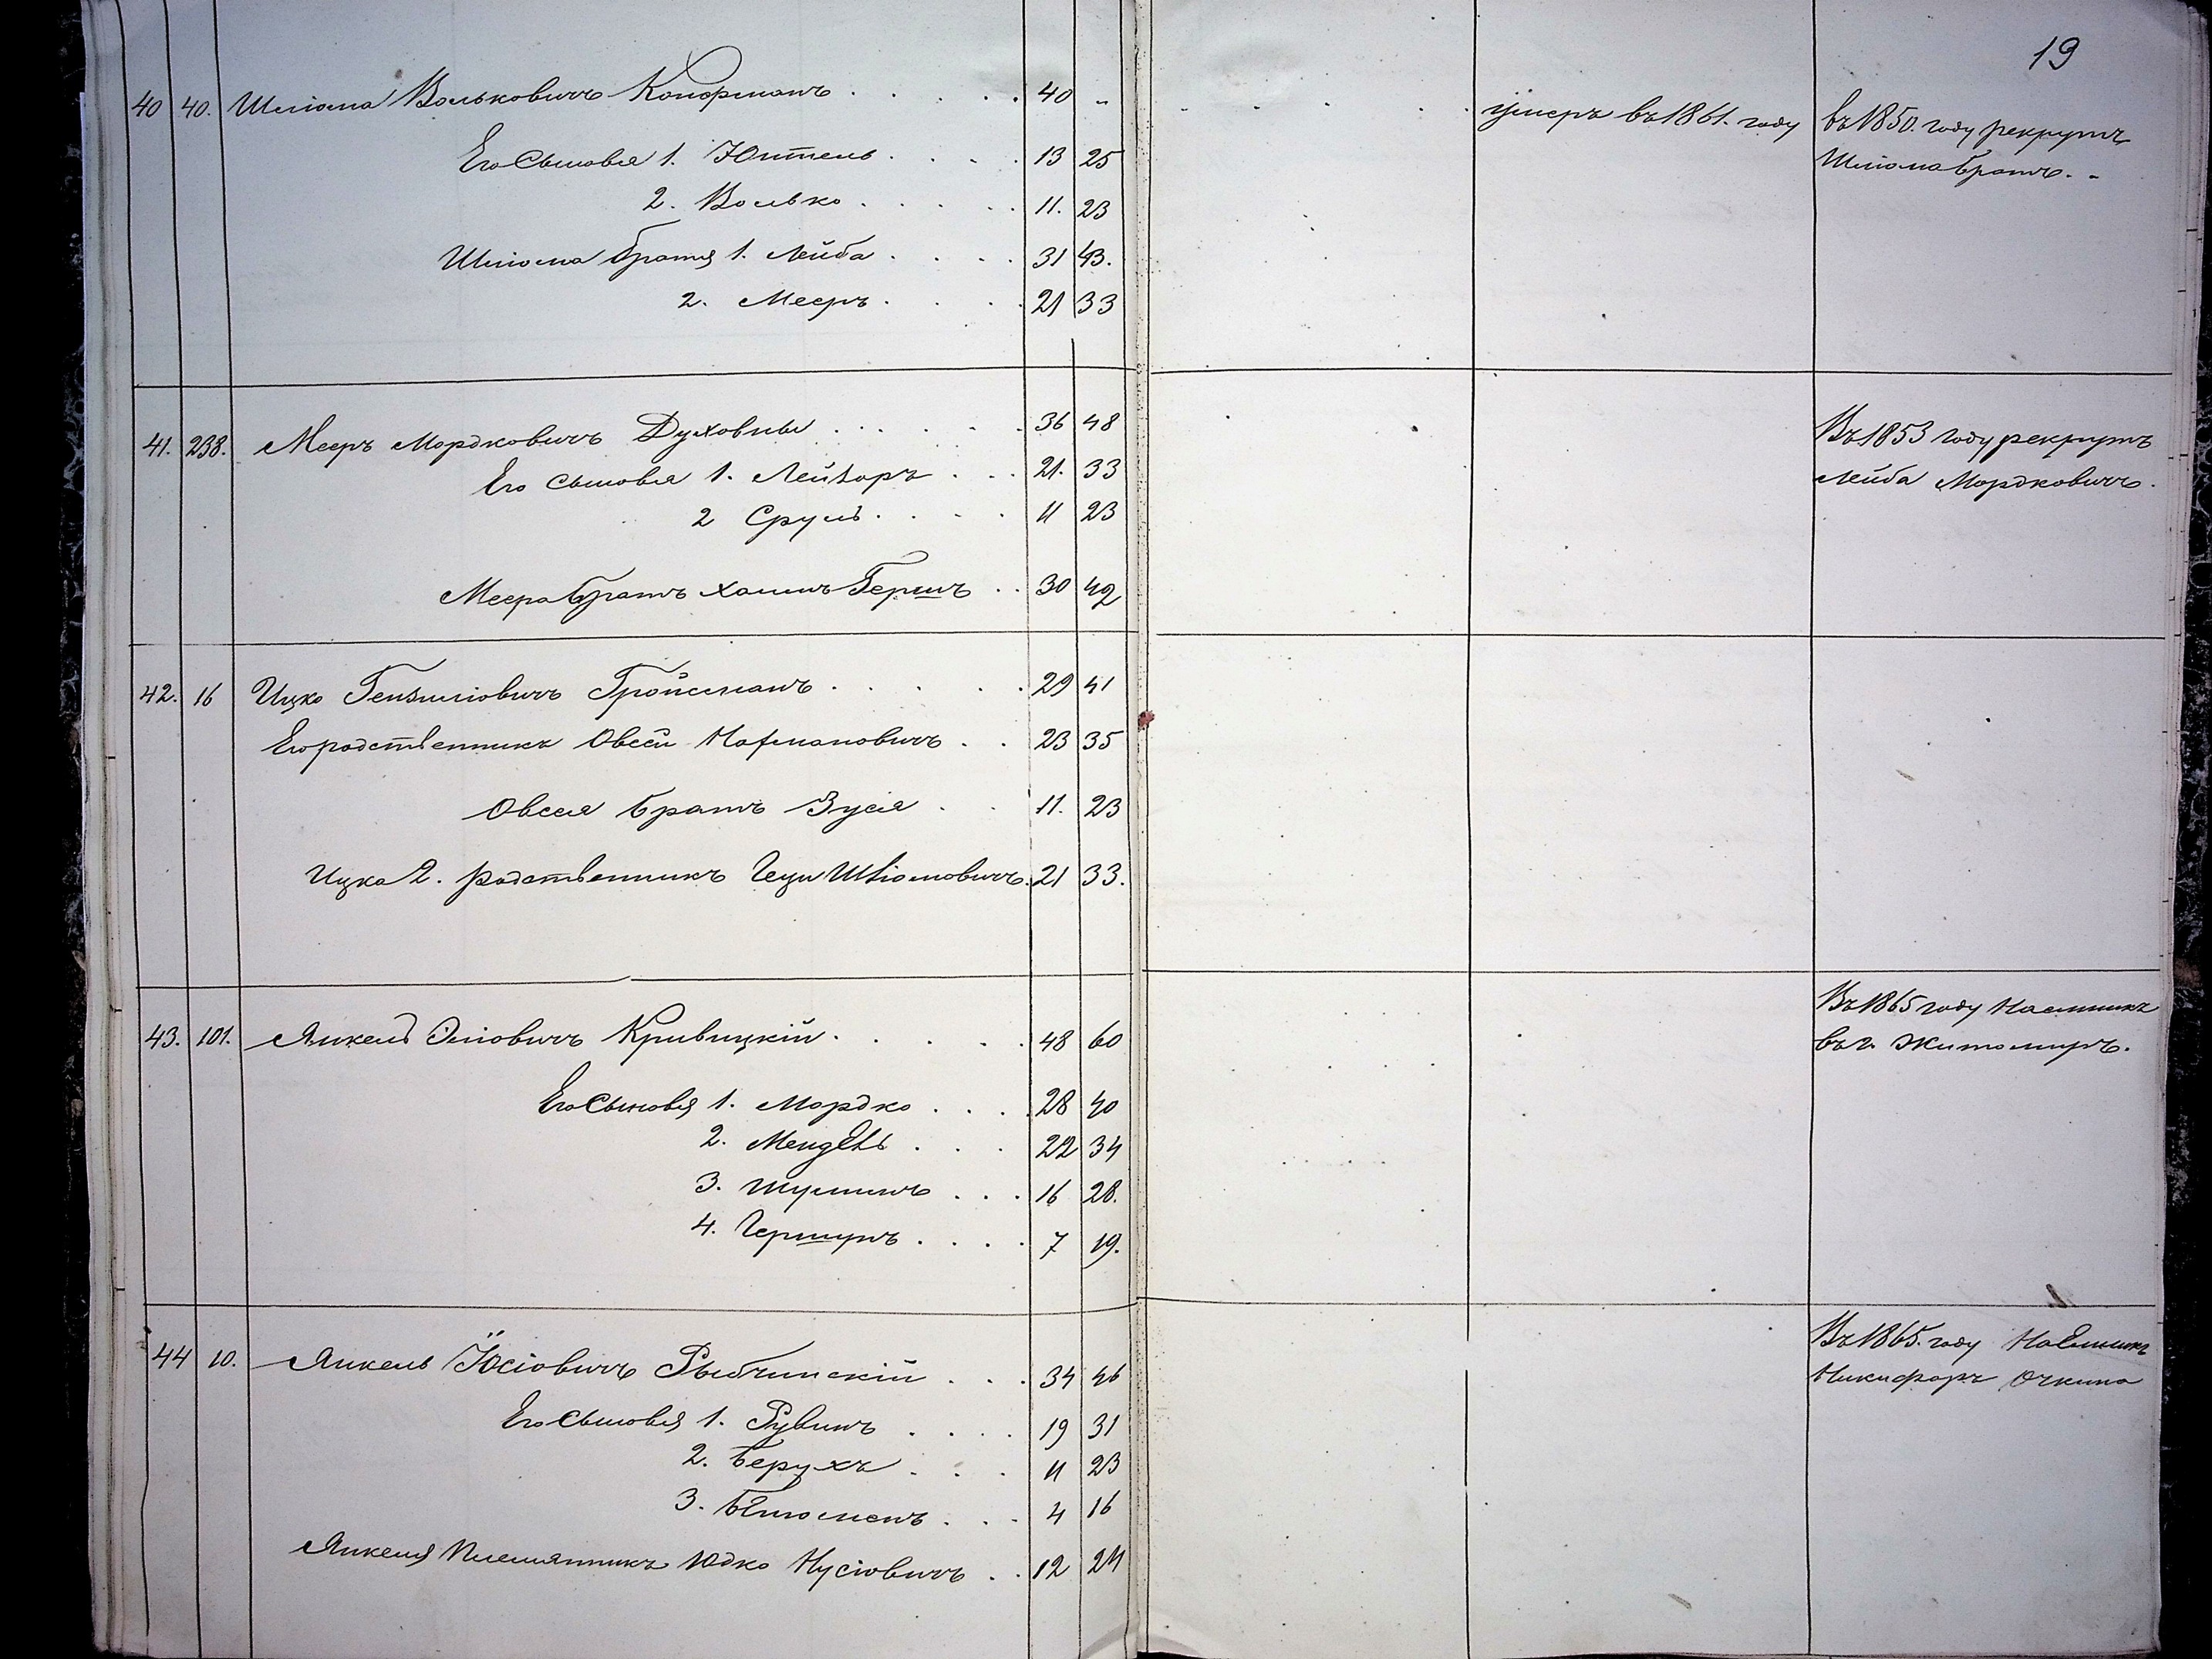 19
40 40. Шліома Вольковичъ Копфманъ . . . . . 40 „ умеръ въ 1861. году въ 1850. году рекрутъ
Шліома братъ. -
Его Сыновья 1. Юктель . . . . 13 25
2. Волько . . . . . 11. 23
Шліома братья 1. Лейба . . . . 31 43.
2. Мееръ . . . . 21 33
41. 238. Мееръ Мордковичъ Духовны . . . . . 36 48 Въ 1853 году рекрутъ
Лейба Мордковичъ.
Его сыновья 1. Лейзоръ . . . 21. 33
2 Сруль . . . . 11 23
Меера братъ Хаимъ Гершъ . . 30 42
42. 16 Ицко Гензиліовичъ Гройсманъ . . . . . 29 41
Его родственникъ Овсей Нафмановичъ . . 23 35
Овсея братъ Зуся . . 11. 23
Ицка 2. родственникъ Шліомовичъ. 21 33.
43. 101. Янкель Эліовичъ Кривицкій . . . . . 48 60 Въ 1865 году Наемникъ
въ г. Житомиръ.
Его Сыновья 1. Мордко . . . . 28 40
2. Мендель . . . 22 34
3. Шулимъ . . . 16 28.
4. Гершунъ . . . . 7 19.
44 10. Янкель Юсіовичъ Рыбчинскій . . . 34 46 Въ 1865. году Наемникъ
Никифоръ Очкина
Его Сыновья 1. Рувинъ . . . . 19 31
2. Берухъ . . . 11 23
3. . . . 4 16
Янкеля Племянникъ Юдко Нусіовичъ . . 12 24